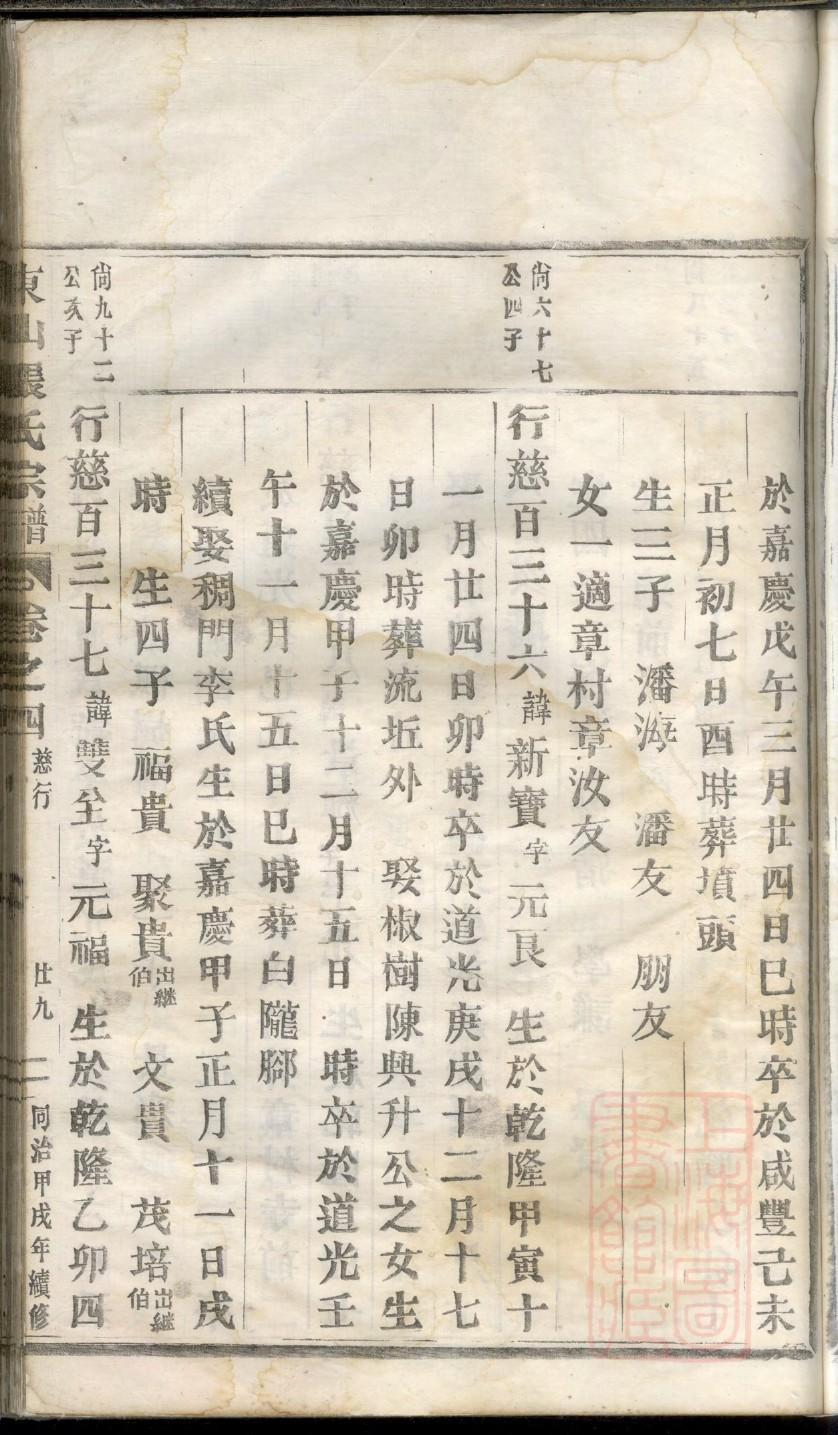 於嘉慶戊午三月廿四日巳時卒於咸豐己未
正月初七日酉時葬墳頭
生三子 潘海 潘友 朋友
女一適章村章汝友
尙六十七
公四子
行慈百三十六諱新寶字元良 生於乾隆甲寅十
一月廿四日卯時卒於道光庚戌十二月十七
日卯時葬流坵外 娶椒樹陳興升公之女生
於嘉慶甲子十二月十五日 時卒於道光壬
午十一月十五日巳時葬白隴腳
續娶稠門李氏生於嘉慶甲子正月十一日戌
時 生四子 福貴 聚貴出継伯 文貴 茂培出継伯
尙九十二
公亥子
行慈百三十七諱雙全字元福 生於乾隆乙卯四
東山張氏宗譜 卷之四 慈行 廿九 同治甲戌年續修
上海圖書館藏